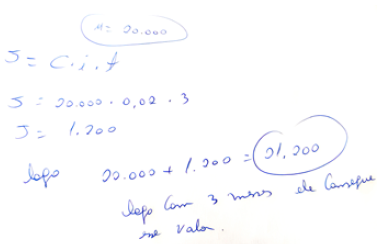 M = 20.000
J = C.i.t
J = 20.000 . 0,02 . 3
J = 1.200
logo 20.000 + 1.200 = 21.200
logo com 3 meses ele consegue
esse valor.